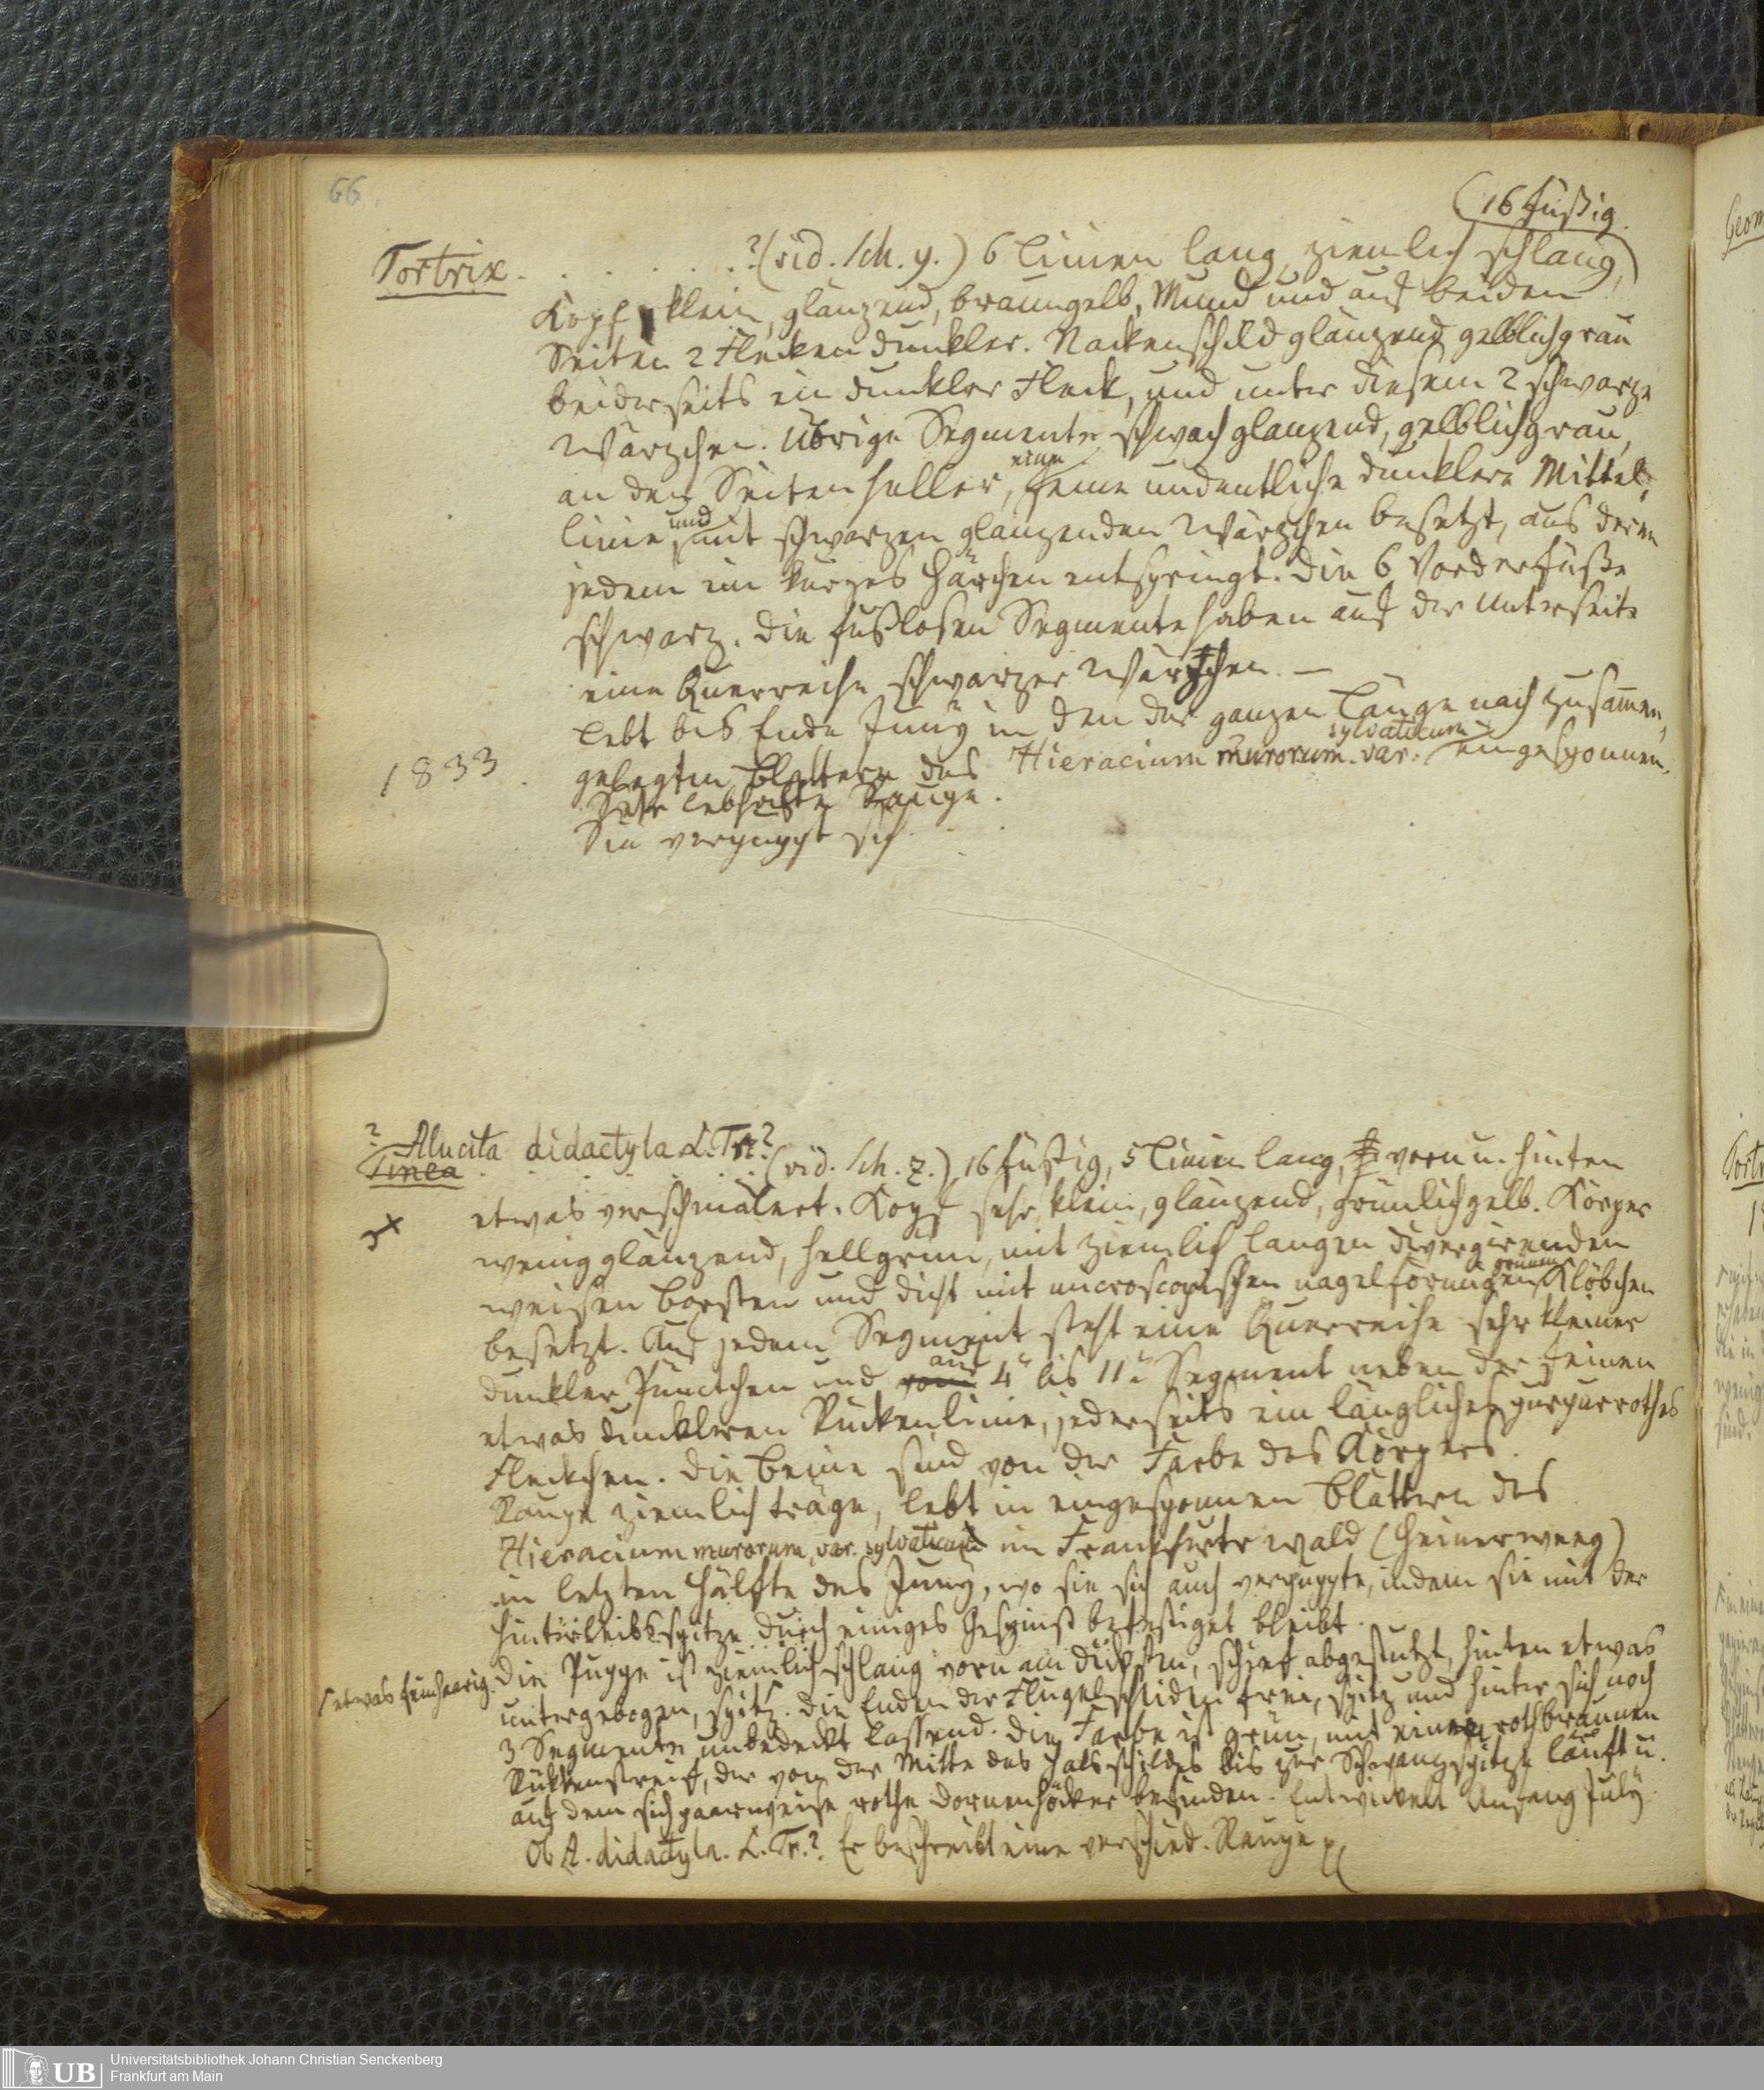 66
(16 füßig.
Tortrix . . . . . . . ? (vid. Sch. y.) 6 Linien lang, ziemlich schlang,)
Kopf klein, glänzend, braungelb, Mund und auf beiden
Seiten 2 Flecken dunkler. Nackenschild glänzend gelblichgrau
beiderseits ein dunkler Fleck, und unter diesem 2 schwarze
Wärzchen. Übrige Segmente schwach glänzend, gelblichgrau,
an den Seiten heller, eine feine undeutliche dunklere Mittel-
linie und mit schwarzen glänzenden Wärzchen besetzt, aus deren
jedem ein kurzes Härchen entspringt. Die 6 Vorderfüße
schwarz. Die fußlosen Segmente haben auf der Unterseite
eine Querreihe schwarzer Wärzchen. —
Lebt bis Ende Juny in den der ganzen Länge nach zusammen-
1833. gelegten Blättern des Hieracium murorum. var. sylvaticum eingesponnen.
Sehr lebhafte Raupe.
Sie verpuppt sich . .
? Alucita didactyla L. Tr?
Tinea . . . . . . (vid. Sch. z.) 16 füßig, 5 Linien lang, vorn u. hinten
etwas verschmälert. Kopf sehr klein, glänzend, grünlichgelb. Körper
wenig glänzend, hellgrün, mit ziemlich langen divergirenden
weißen Borsten und dicht mit microscopischen nagelförmigen grünen Klöbchen
besetzt. Auf jedem Segment steht eine Querreihe sehr kleiner
dunkler Pünctchen und vom auf 4n bis 11n Segment neben der feinen
etwas dunkleren Rückenlinie, jederseits ein längliches purpurrothes
Fleckchen. Die Beine sind von der Farbe des Körpers.
Raupe ziemlich träge, lebt in eingesponnen Blättern des
Hieracium murorum, var. sylvaticum im Frankfurter Wald (Heinerweeg)
in letzten Hälfte des Juny, wo sie sich auch verpuppte, indem sie mit der
Hinterleibsspitze durch einiges Gespinst befestiget bleibt.
Die Puppe ist ziemlich schlang vorn am dicksten, schief abgestutzt, hinten etwas
etwas feinhaarig. untergebogen, spitz. Die Enden der Flügelscheiden frei, spitz und hinter sich noch
3 Segmente unbedeckt lassend. Die Farbe ist grün, mit einem rothbraunen
Rückenstreif, der von der Mitte des Halsschildes bis zur Schwanzspitze läuft u.
auf dem sich paarweise rothe Dornenhöcker befinden. Entwickelt Anfang July.
Ob A. didactyla. L. Tr.? Er beschreibt eine verschied. Raupe
Universitätsbibliothek Johann Christian Senckenberg
Frankfurt am Main
UB